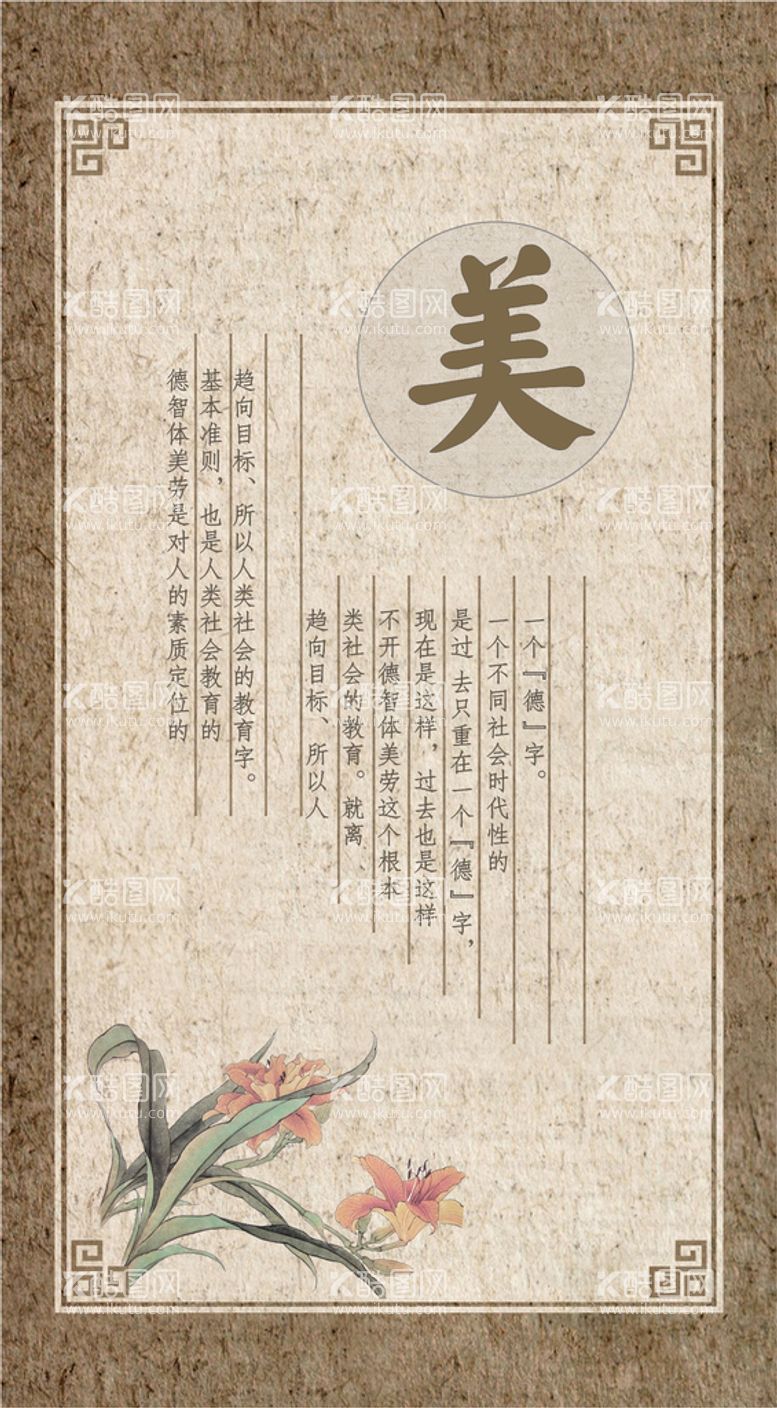 美
一个『德』字。
一个不同社会时代性的
是过 去只重在一个『德』字，
现在是这样，过去也是这样
不开德智体美劳这个根本
类社会的教育。就离
趋向目标、所以人
趋向目标、所以人类社会的教育字。
基本准则，也是人类社会教育的
德智体美劳是对人的素质定位的
酷图网
www.ikutu.com